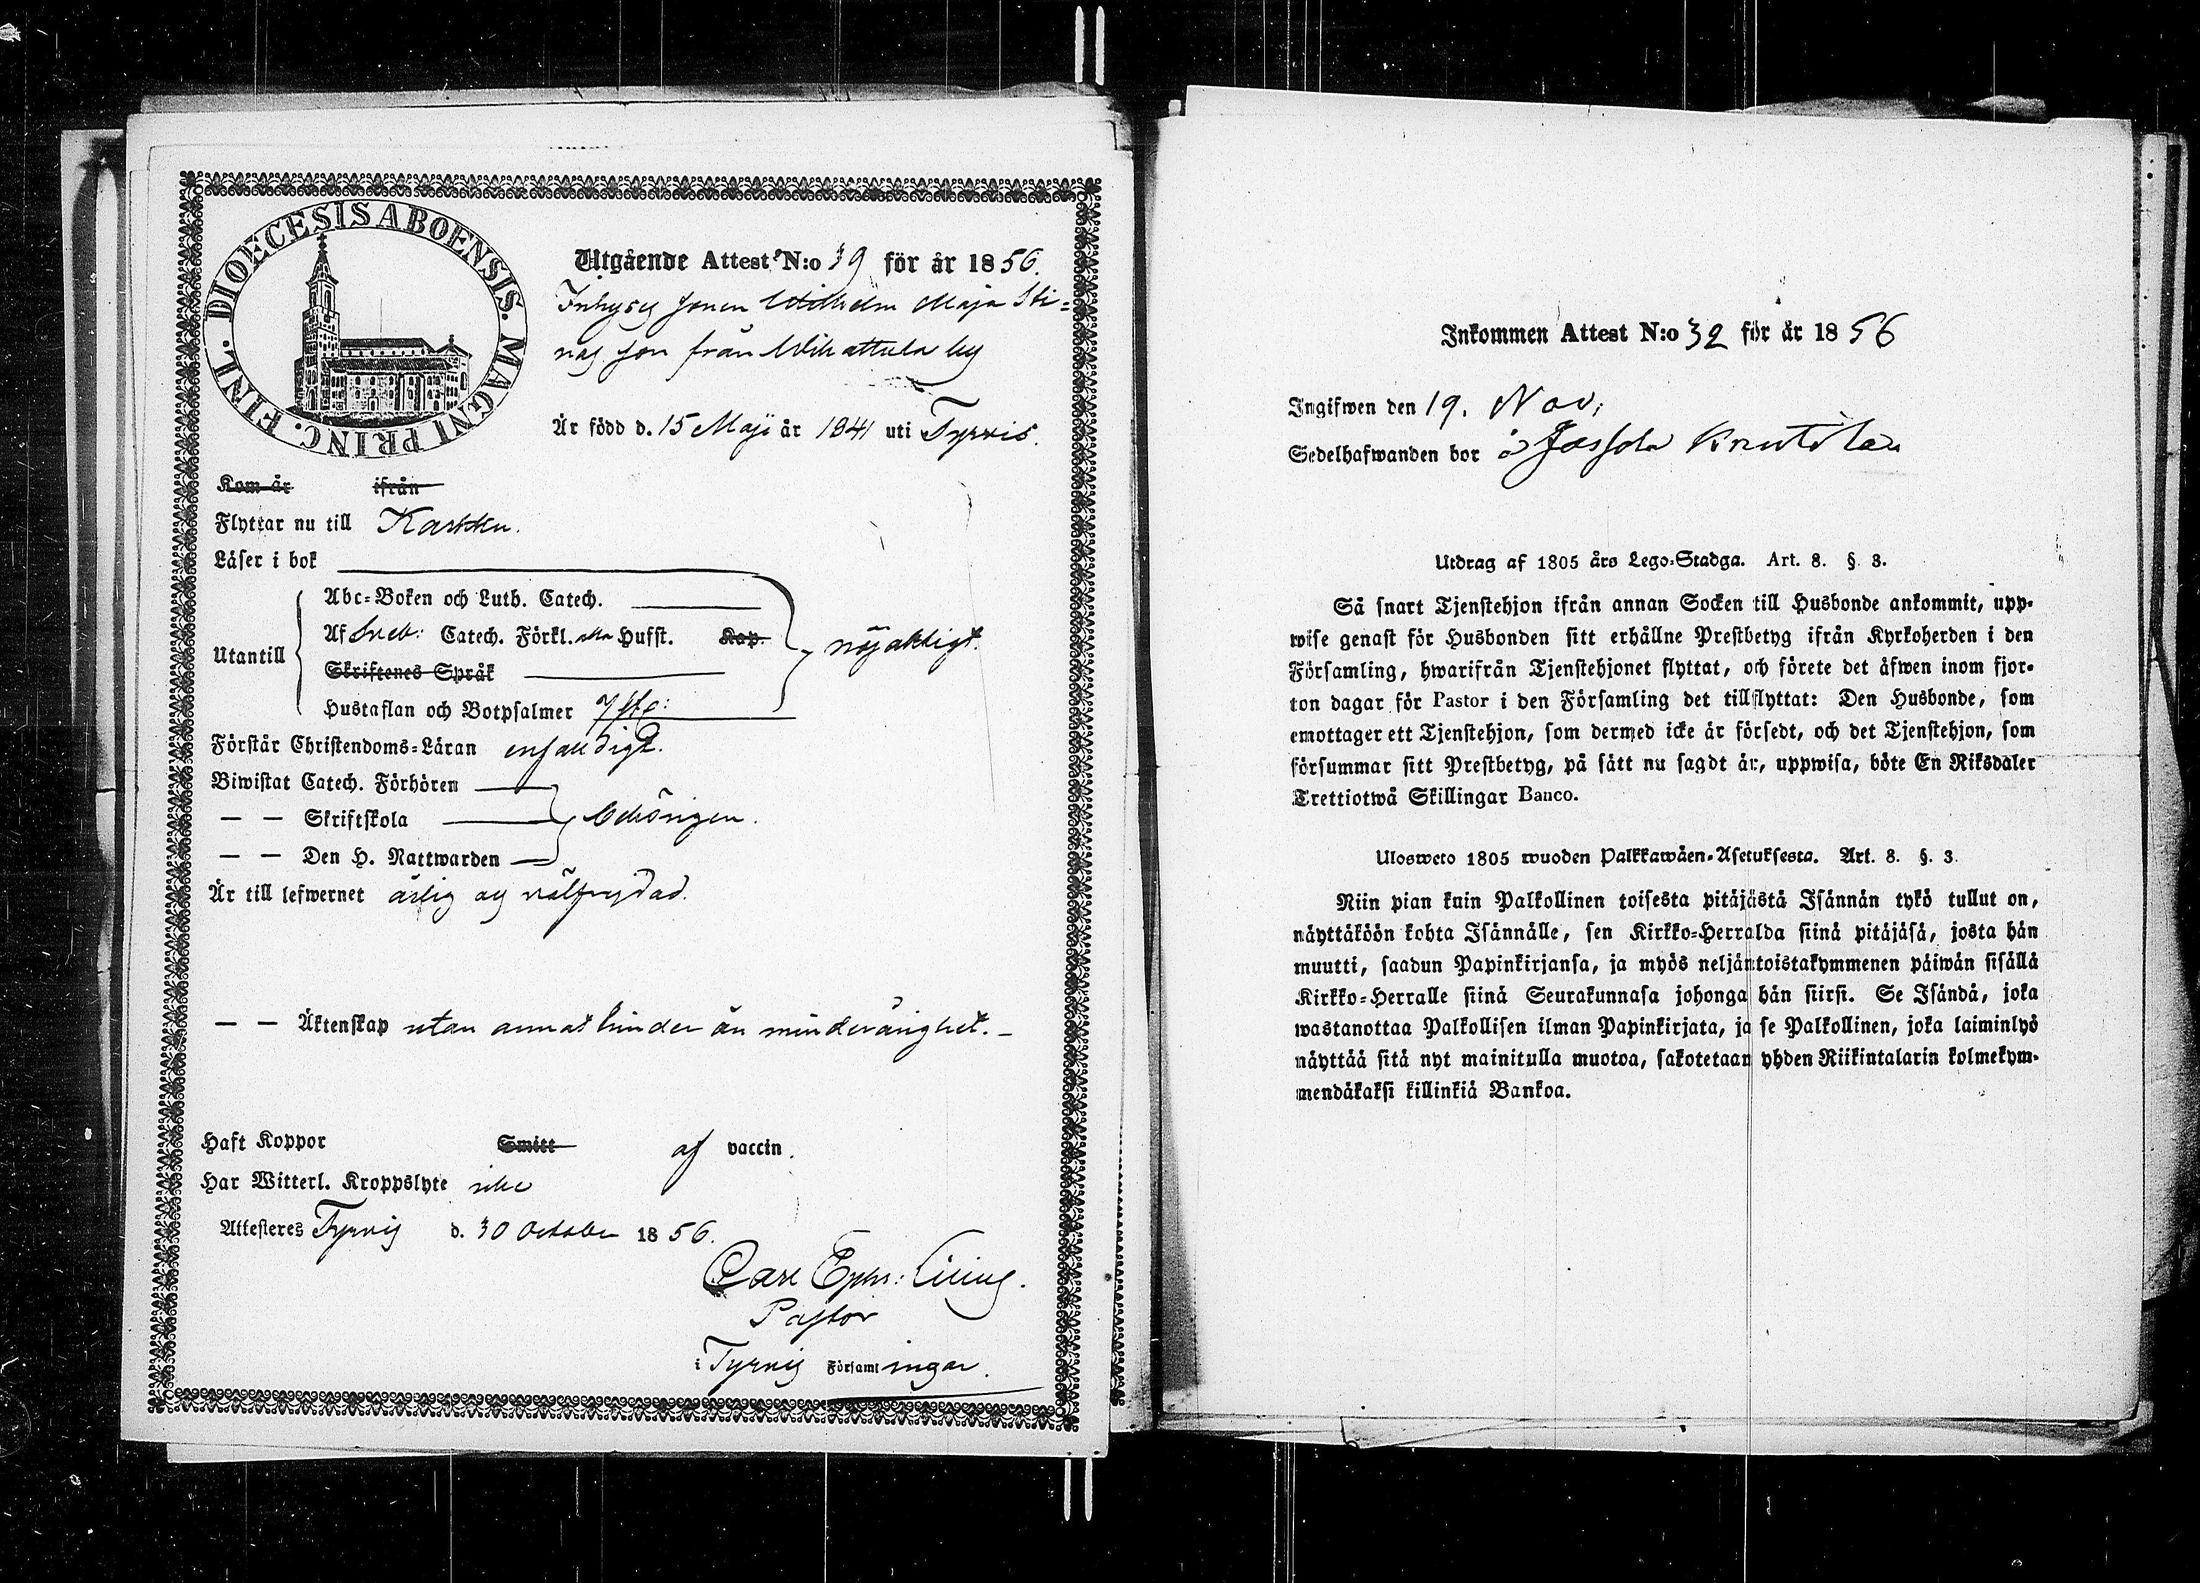 DIOECESIS ABOENSIS. MAGNI PRINC. FINL.
Utgående Attest N:o 39 för år 1856.
Inhyses sonen Wilhelm Maja Sti-
nas son från Wihattula by
Är född d. 15 Maji år 1841 uti Tyrvis.
Kom år ifrån
Flyttar nu till Karkku.
Läser i bok
Abc-Boken och Luth. Catech.
Af Sveb: Catech. Förkl. Husst. Kap.
Utantill
nöjaktigt.
Skriftenes Språk
Hustaflan och Botpsalmer
Förstår Christendoms-Läran enfaldigt.
Biwistat Catech. Förhören
— — Skriftskola behörigen.
— — Den H. Nattwarden
Är till lefwernet ärlig och välfrejdad.
— — Äktenskap utan annat hinder än minderårighet. —
Haft Koppor Smitt af vaccin.
Har Witterl. Kroppslyte icke
Attesteres Tyrvis d. 30 October 1856.
Carl Ephr:
Pastor
i Tyrvis Församlingar.
Inkommen Attest N:o 32 för år 1856
Ingifwen den 19. Nov.
Sedelhafwanden bor å Knutila
Utdrag af 1805 års Lego-Stadga. Art. 8. §. 3.
Så snart Tjenstehjon ifrån annan Socken till Husbonde ankommit, upp-
wise genast för Husbonden sitt erhållne Prestbetyg ifrån Kyrkoherden i den
Församling, hwarifrån Tjenstehjonet flyttat, och förete det äfwen inom fjor-
ton dagar för Pastor i den Församling det tillflyttat: Den Husbonde, som
emottager ett Tjenstehjon, som dermed icke är försedt, och det Tjenstehjon, som
försummar sitt Prestbetyg, på sätt nu sagdt är, uppwisa, böte En Riksdaler
Trettiotwå Skillingar Banco.
Ulosweto 1805 wuoden Palkkawäen-Asetuksesta. Art. 8. §. 3.
Niin pian kuin Palkollinen toisesta pitäjästä Isännän tykö tullut on,
näyttäköön kohta Isännälle, sen Kirkko-Herralda siinä pitäjäsä, josta hän
muutti, saadun Papinkirjansa, ja myös neljäntoistakymmenen päiwän sisällä
Kirkko-Herralle siinä Seurakunnasa johonga hän siirsi. Se Isändä, joka
wastanottaa Palkollisen ilman Papinkirjata, ja se Palkollinen, joka laiminlyö
näyttää sitä nyt mainitulla muotoa, sakotetaan yhden Riikintalarin kolmekym-
mendäkaksi killinkiä Bankoa.